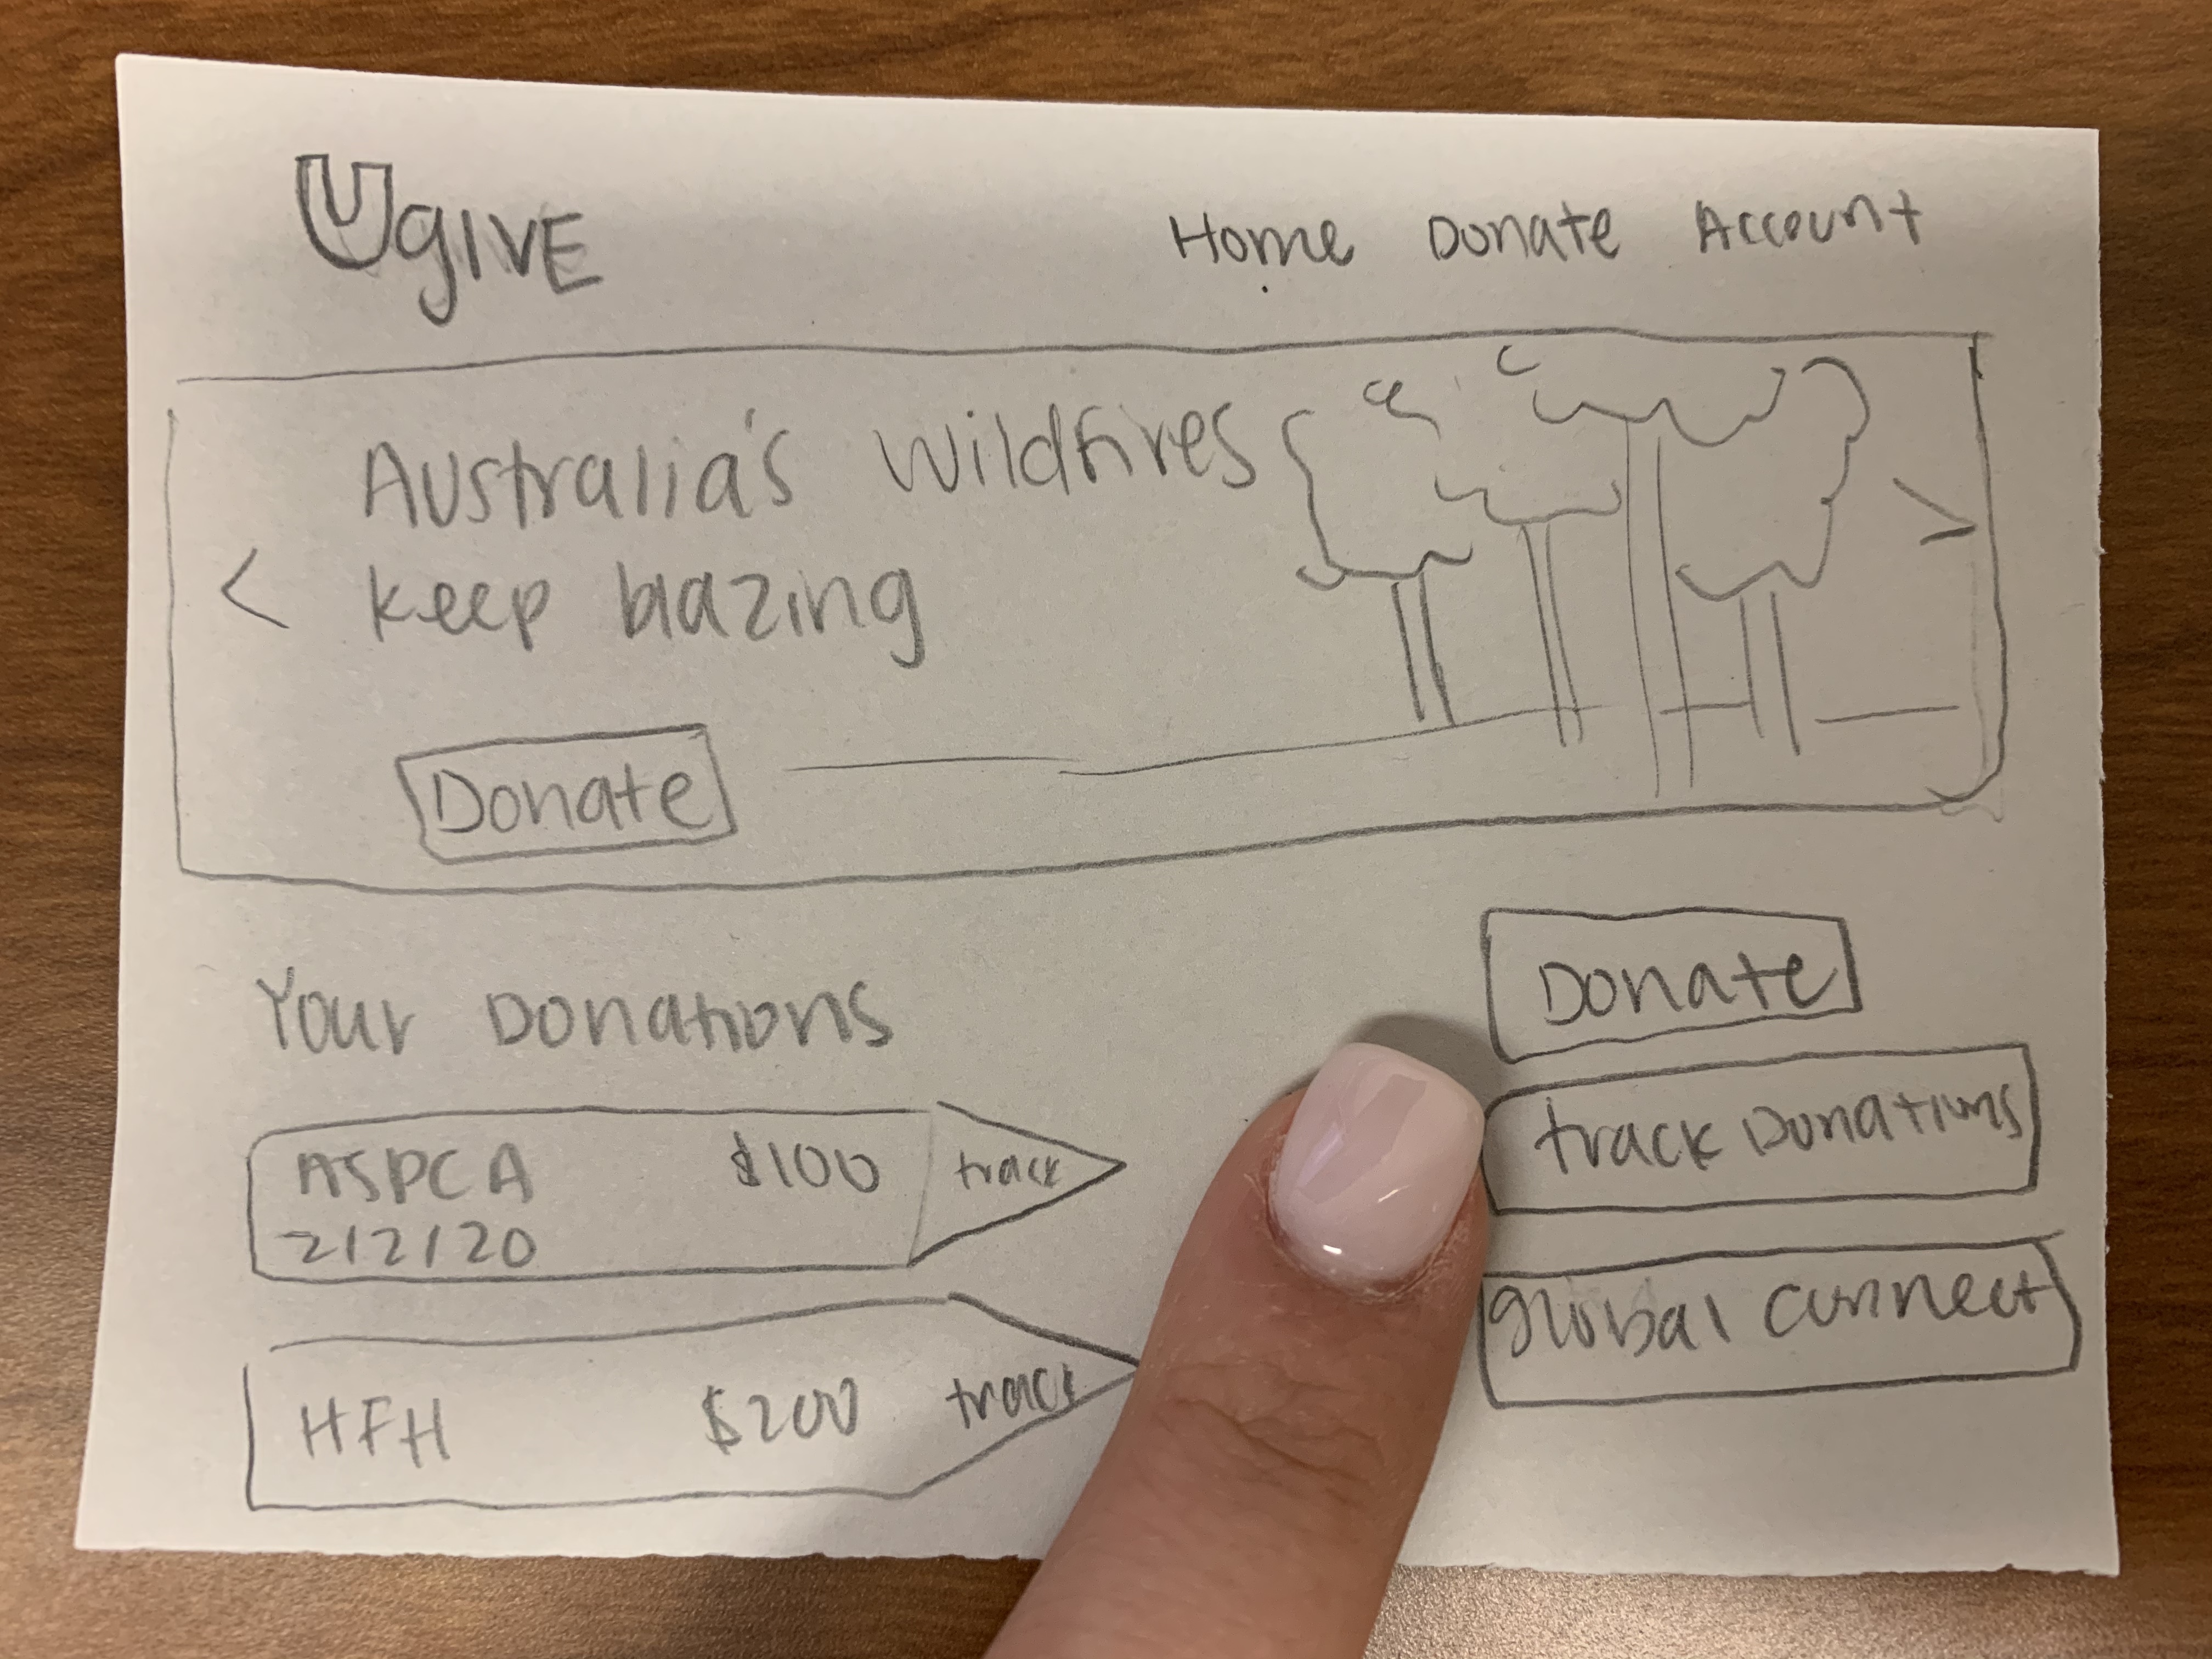 UgIVE
Home Donate Account
Australia's Wildfires
keep blazing
<
>
Donate
Your Donations
ASPCA $100 track
2/2/20
HFH $200 track
Donate
track Donations
global connect